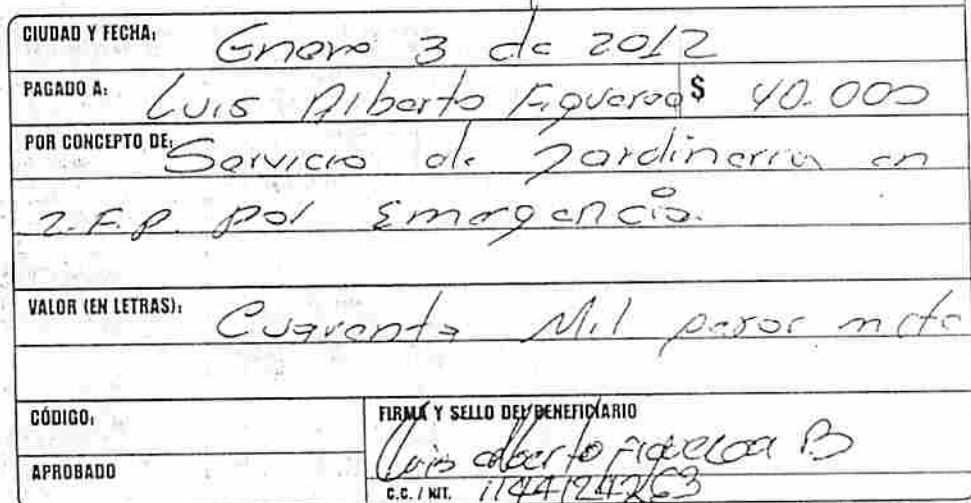 CIUDAD Y FECHA: Enero 3 de 2012
PAGADO A: Luis Alberto Figueroa $ 40.000
POR CONCEPTO DE: Servicio de Jardineria en
Z.F.P. por Emergencia.
VALOR (EN LETRAS): Cuarenta Mil pesos mcte
CÓDIGO: FIRMA Y SELLO DEL BENEFICIARIO
Luis alberto Figueroa B
APROBADO C.C. / NIT.